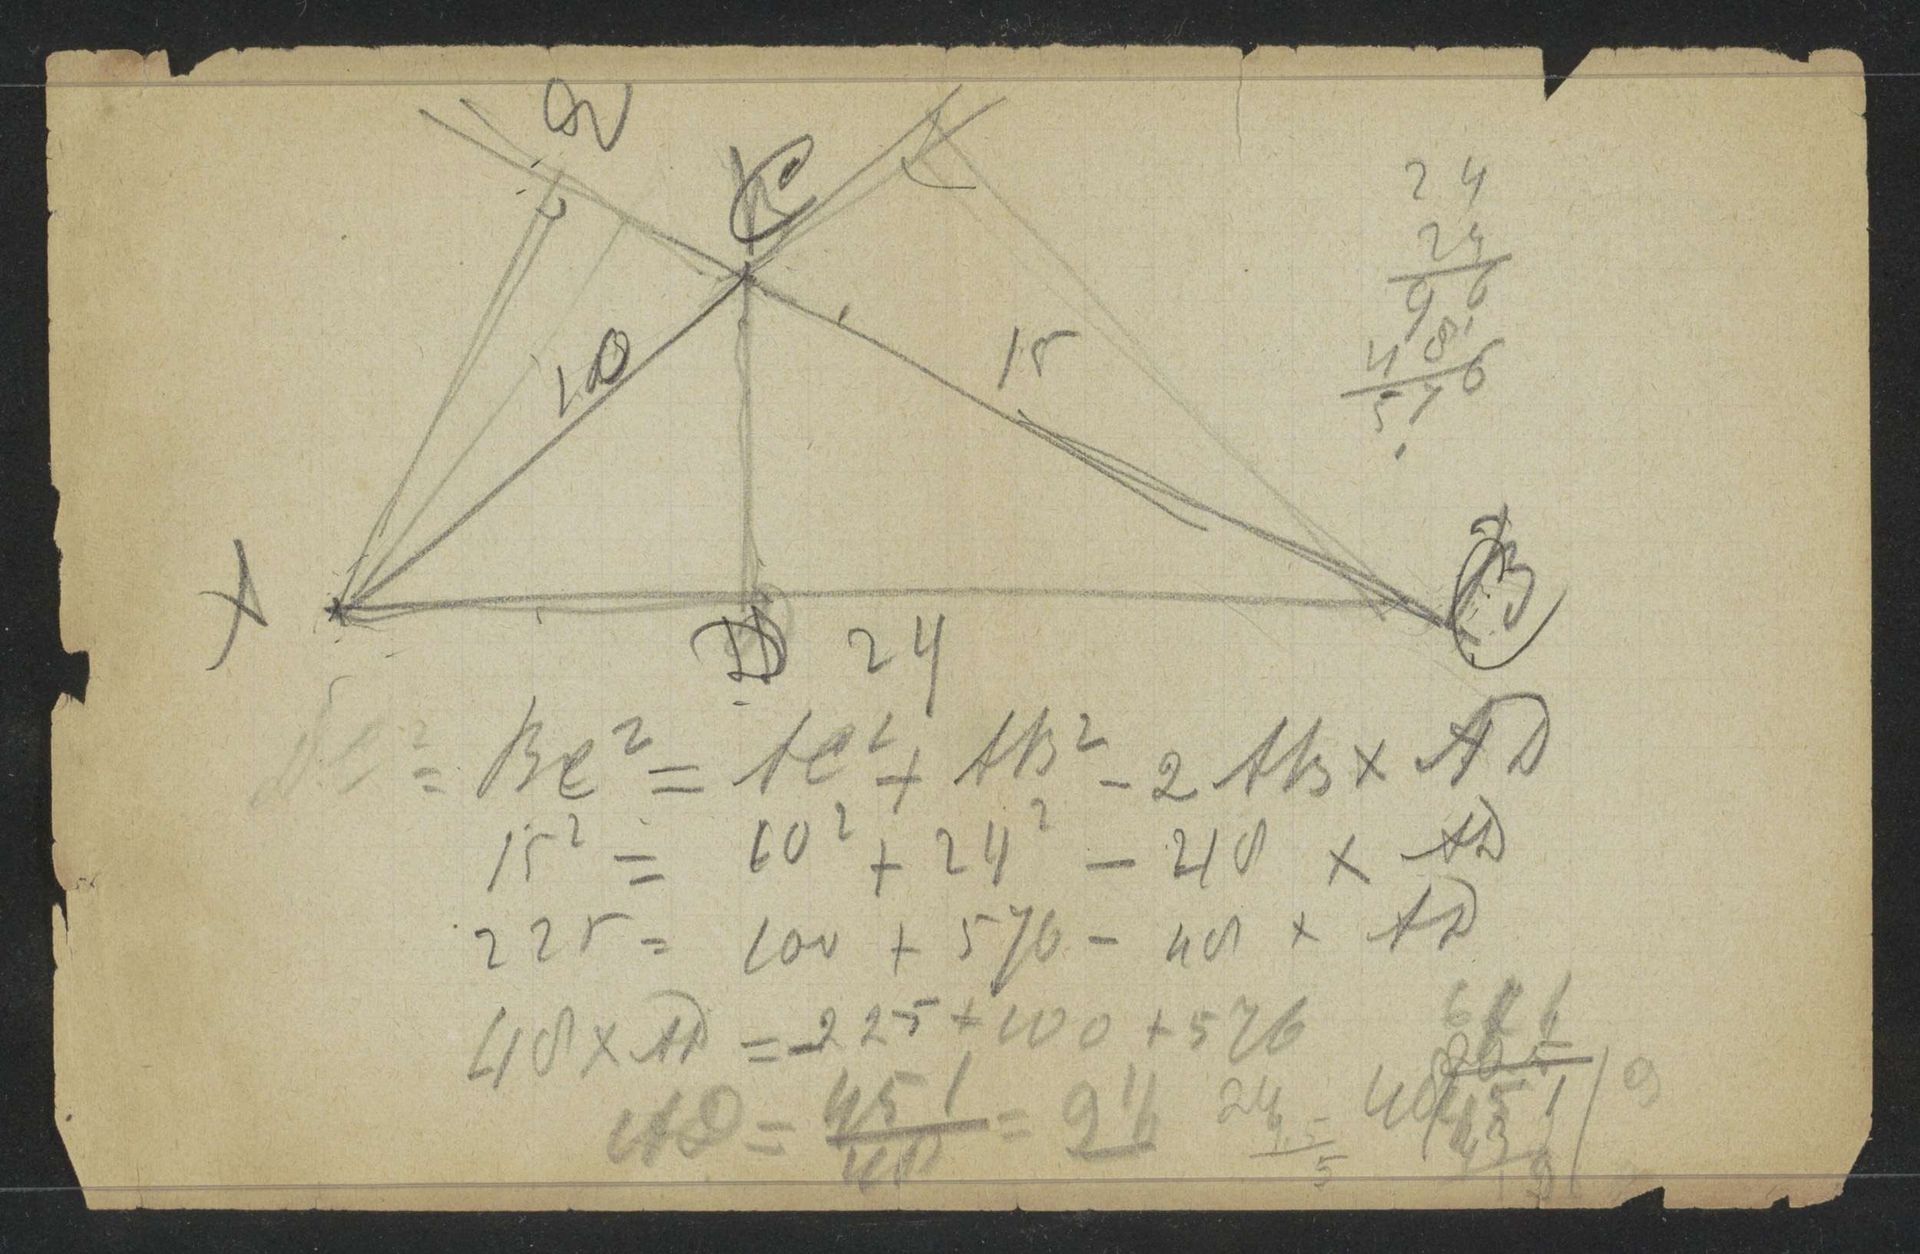 C
10
15
24
24
96
48
576
A
B
D
24
= BC² = AC² + AB² - 2 AB × AD
15² = 10² + 24² - 48 × AD
225 = 100 + 576 - 48 × AD
48 × AD = -225 + 100 + 576
AD = 451/48 = 9
676
225
451 / 9